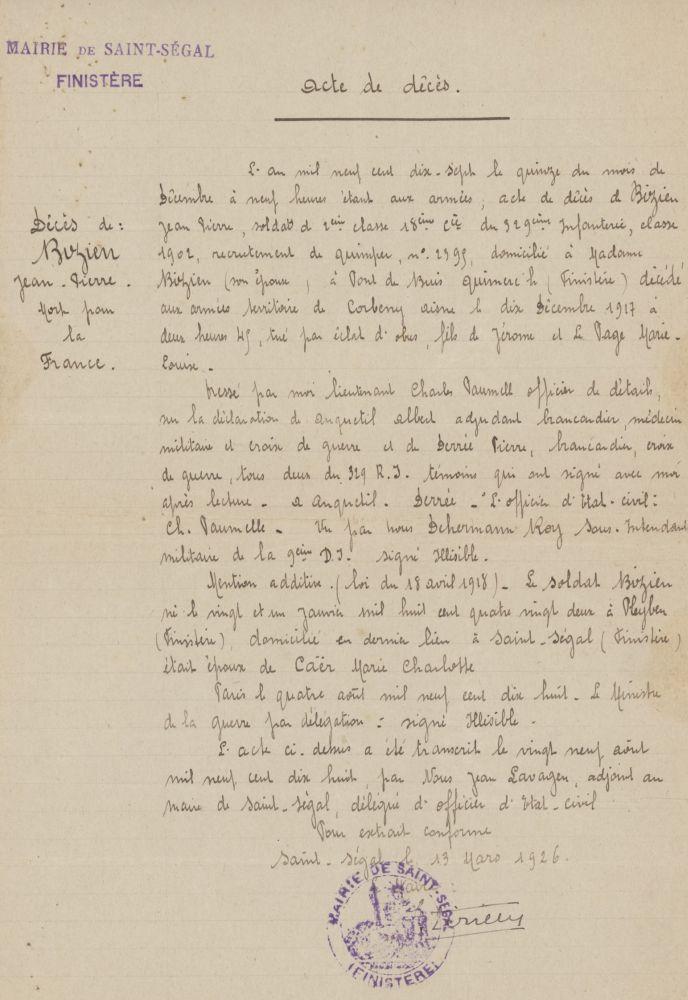 MAIRIE DE SAINT-SÉGAL
FINISTÈRE
Acte de décès.
Décès de :
Bozien
Jean-Pierre.
Mort pour
la
France.
L'an mil neuf cent dix-sept le quinze du mois de
Décembre à neuf heures étant aux armées, acte de décès de Bozien
Jean Pierre, soldat de 2eme classe 18eme Cie du 329eme Infanterie, classe
1902, recrutement de quimper, n° 2399, domicilié à Madame
Bozien (son épouse, à Pont de Buis quimerc'h (Finistère) décédé
aux armées territoire de Corbeny aisne le dix Décembre 1917 à
deux heures 45, tué par éclat d'obus, fils de Jérome et Le Page Marie-
Louise.
Dressé par moi lieutenant Charles Vaumelle officier de détails,
sur la déclaration de anquetil albert adjudant brancardier, médecin
militaire et croix de guerre et de Derrée Pierre, brancardier, croix
de guerre, tous deux du 329 R.I. témoins qui ont signé avec moi
après lecture - a anquetil. Derrée - L'officier d'Etat-civil :
Ch. Vaumelle - Vu par nous Dchermann Roy Sous-Intendant
militaire de la 9eme D.I. signé Illisible.
Mention additive. (loi du 18 avril 1918) - Le soldat Bozien
né le vingt et un janvier mil huit cent quatre vingt deux à Pleyben
(Finistère), domicilié en dernier lieu à Saint-Ségal (Finistère)
était époux de Caër Marie Charlotte
Paris le quatre août mil neuf cent dix huit - Le Ministre
de la guerre par délégation = signé Illisible -
L'acte ci-dessus a été transcrit le vingt neuf août
mil neuf cent dix huit, par Nous Jean Lavagen, adjoint au
maire de Saint-Ségal, délégué d'officier d'Etat-civil
Pour extrait conforme
Saint-Ségal le 13 Mars 1926.
Le Maire :
MAIRIE DE SAINT-SÉGAL
(FINISTERE)